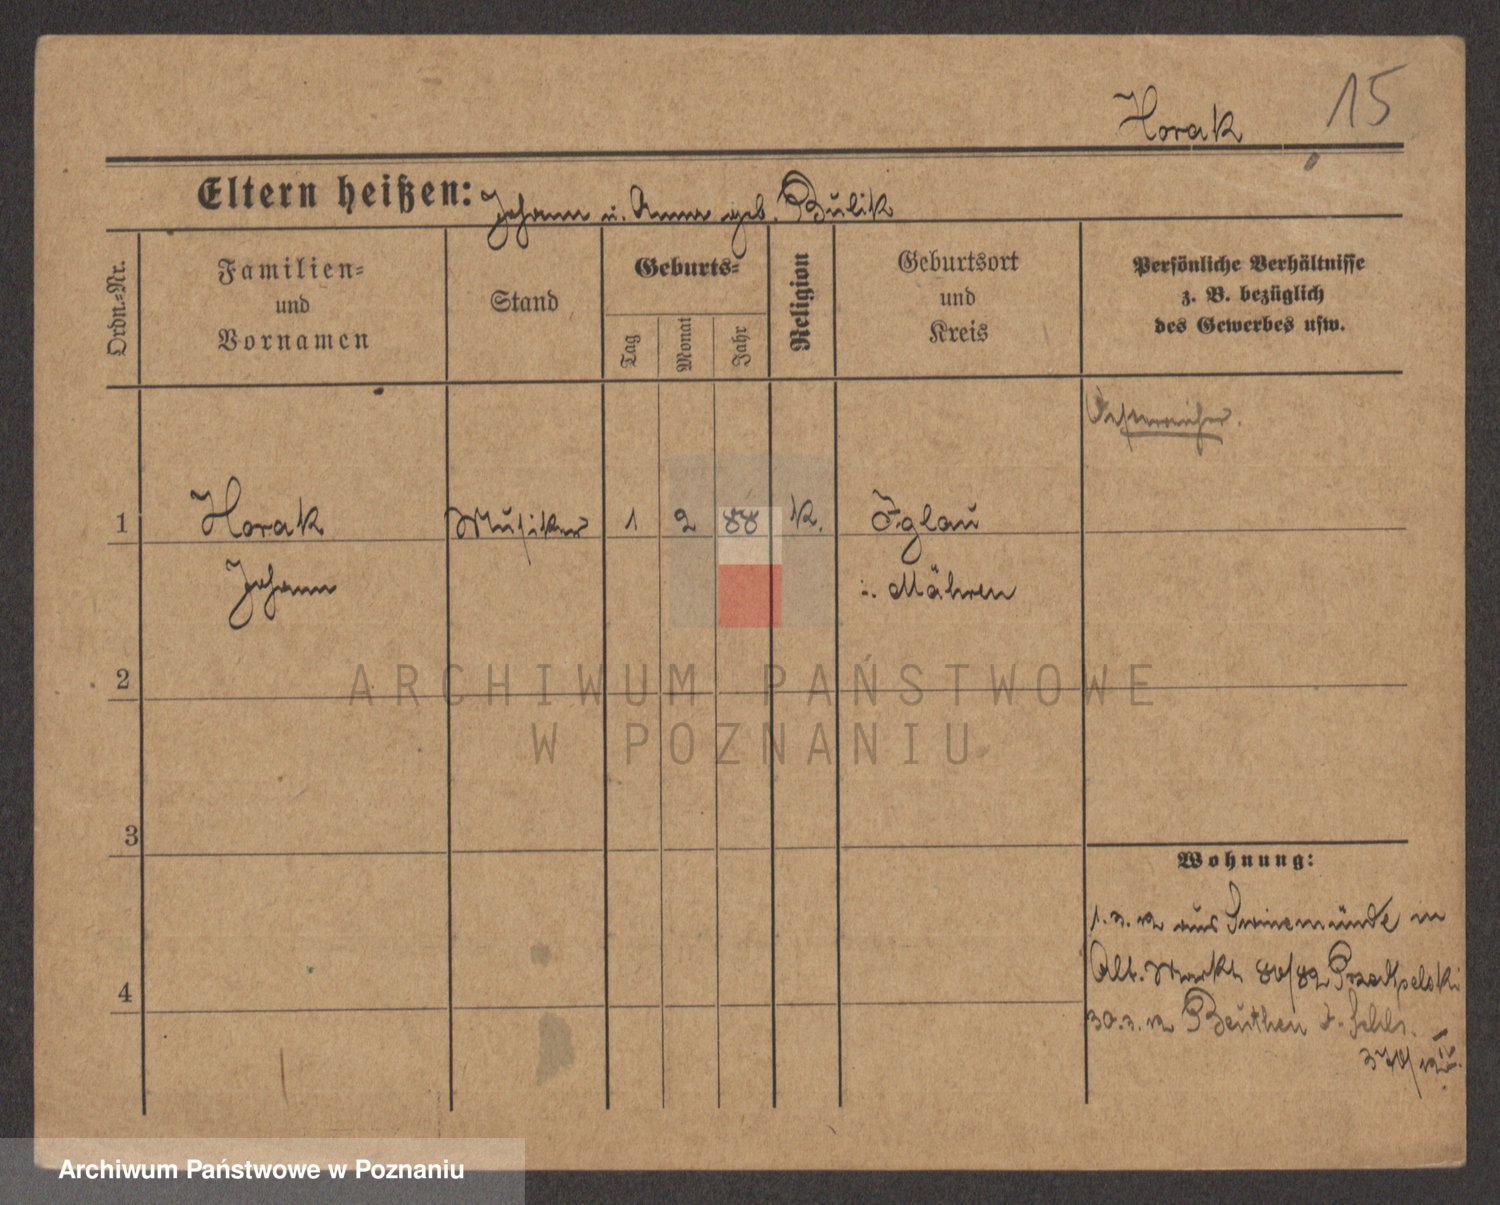 Horak 15
Eltern heißen: Johann u. Anna geb. Bulik
Ordn.-Nr.
Familien-
und
Vornamen
Stand
Geburts-
Tag
Monat
Jahr
Religion
Geburtsort
und
Kreis
Persönliche Verhältnisse
z. B. bezüglich
des Gewerbes usw.
Oesterreicher.
1 Horak Musiker 1 2 88 k. Iglau
Johann i. Mähren
2
ARCHIWUM PAŃSTWOWE
W POZNANIU
3
Wohnung:
1.3.12 aus Swinemünde in
Alt. Markt 80/82
4
30.3.12 Beuthen O. Schls.
Archiwum Państwowe w Poznaniu